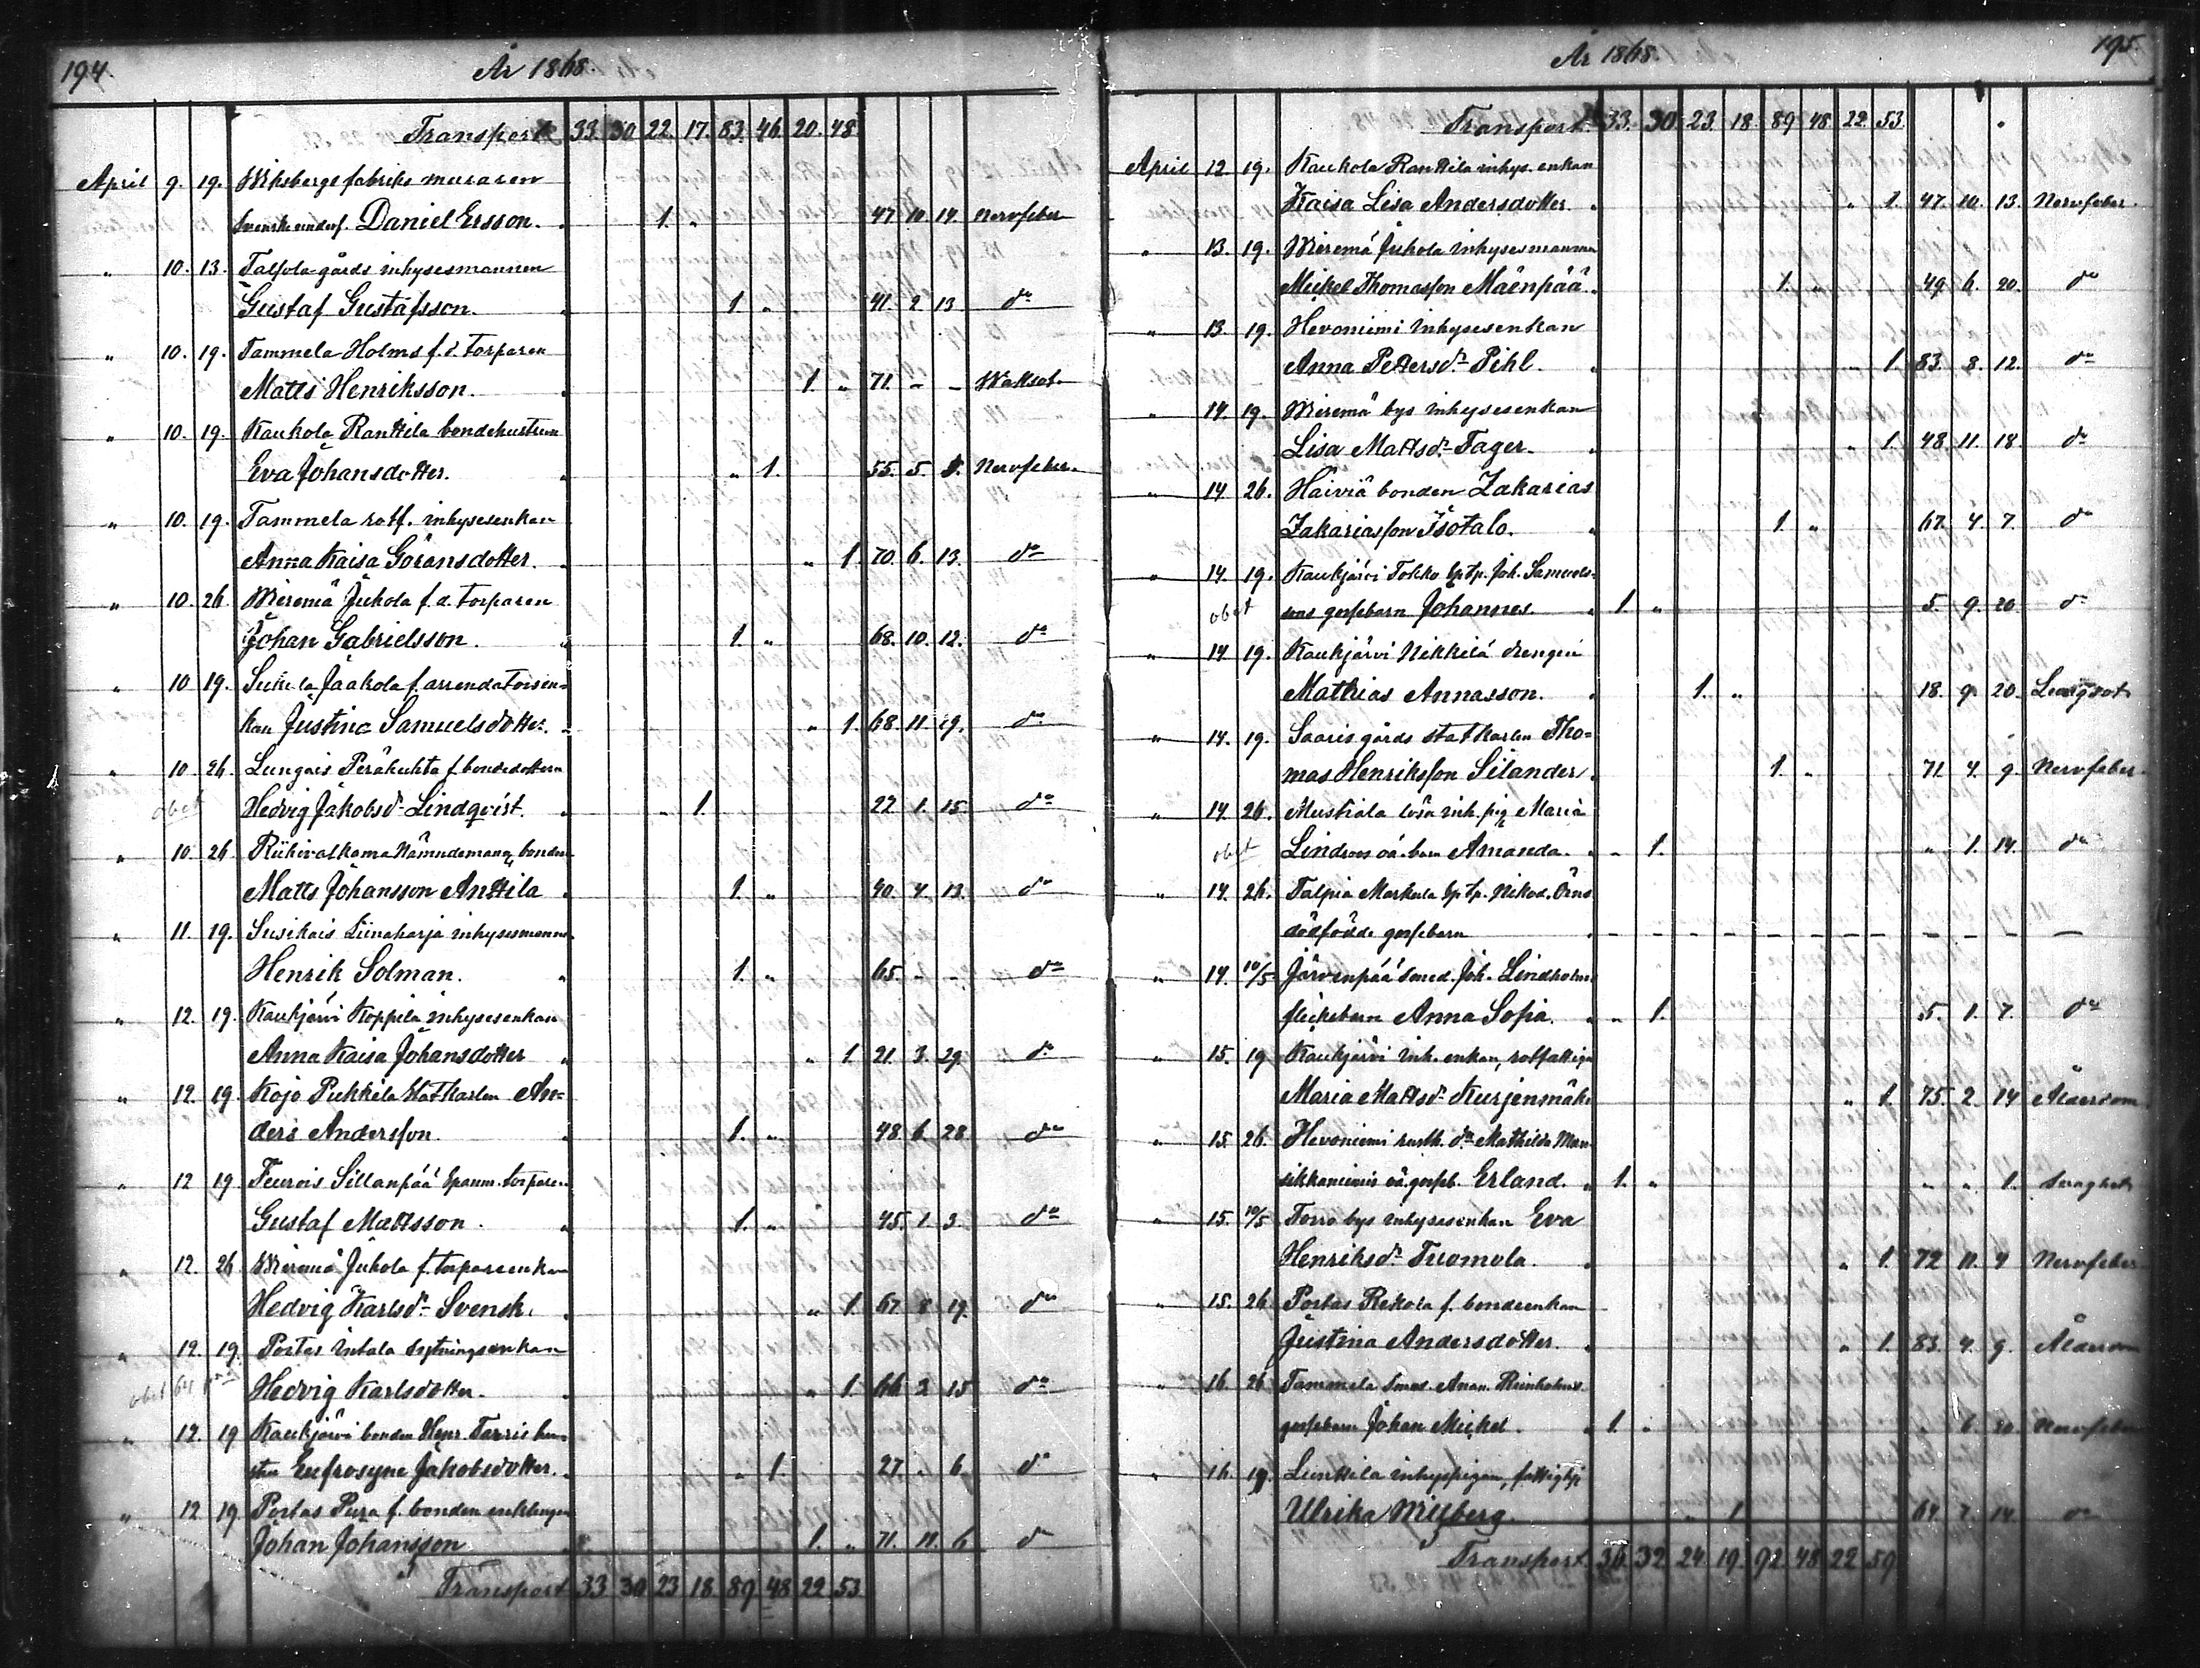 194. År 1868.
Transport 33. 30 22. 17. 83. 46. 20. 48
April 9. 19. Wiksbergs fabriks muraren
Svenske unders. Daniel Ersson. 1. " 47. 10. 14. Nervfeber
" 10. 13. Talsola gårds inhysesmannen
Gustaf Gustafsson. 1 " 41. 2 13 do
" 10. 19. Tammela Holms f. d. torparen
Matts Henriksson. 1. " 71. - - Wattsot
" 10. 19. Kaukola Ranttila bondehustrun
Eva Johansdotter. " 1. 55. 5. 8. Nervfeber.
" 10. 19. Tammela rotf. inhysesenkan
Anna Kaisa Göransdotter. " 1. 70. 6. 13. do
" 10. 26 Wieremä Jukola f. d. torparen
Johan Gabrielsson. 1. " 68. 10. 12. do
" 10 19. Sukula Jaakola f. arrendatorsen-
kan Justina Samuelsdotter. " 1. 68. 11. 19. do
" 10. 26. Lungais Peräkuhta f. bondedottern
obet Hedvig Jakobsdr Lindqvist. " 1. 22 1. 15. do
" 10. 26 Riihivalkama Nämndeman, bonden
Matts Johansson Anttila 1. " 40. 4. 13. do
" 11. 19. Susikais Liinaharja inhysesmannen
Henrik Solman. 1. " 65. - - do
" 12. 19. Kaukjärvi Koppila inhysesenkan
Anna Kaisa Johansdotter " 1 21. 3. 29. do
" 12. 19. Kojo Pukkila statkarlen An-
ders Andersson. 1. " 48 6. 28 do
" 12 19. Teurois Sillanpää spanm. torparen
Gustaf Mattsson. 1. " 45. 1. 3. do
" 12. 26 Wieremä Jukola f. torpareenkan
Hedvig Karlsdr Svensk. " 1. 67. 8 19. do
" 12. 19. Portas Intala sytningsenkan
obet Hedvig Karlsdotter. " 1. 66 3 15 do
" 12. 19 Kaukjärvi bonden Henr. Tarris hu-
stru Eufrosyne Jakobsdotter. " 1. 27. " 6. do
" 12 19. Portas Pura f. bonden enklingen
Johan Johansson 1. " 71. 11. 6 do
Transport 33 30 23 18 89 48 22. 53.
År 1868. 195.
Transport. 33. 30 23. 18. 89 48. 22. 53.
April 12. 19. Kaukola Ranttila inhys. enkan
Kaisa Lisa Andersdotter. " 1. 47. 10. 13. Nervfeber.
" 13. 19. Wieremä Jukola inhysesmannen
Mickel Thomasson Mäenpää. 1. " 49. 6. 20. do
" 13. 19. Hevoniemi inhysesenkan
Anna Pettersdr Pihl. " 1. 83. 8. 12. do
" 14. 19. Wieremä bys inhysesenkan
Lisa Mattsdr Tager. " 1. 48. 11. 18. do
" 14 26. Häiviä bonden Zakarias
Zakariasson Isotalo. 1. " 67. 4. 7. do
" 14. 19. Kaukjärvi Tokko sptp. Joh. Samuels-
obet sons gossebarn Johannes. 1. " 5. 9. 20 do
" 14 19. Kaukjärvi Nikkilä drengen
Mathias Annasson. 1. " 18. 9. 20. Lungsot
" 14. 19. Saaris gårds statkarlen Tho-
mas Henriksson Silander. 1. " 71. 4. 9. Nervfeber.
" 14. 26. Mustiala lösa inh. pig. Maria
obet Lindroos oä. barn Amanda. " 1. " 1. 14. do
" 14. 26. Talpia Markula sptp. Nikod. Örns
dödfödde gossebarn - - - - - - - - - - - -
" 14. 10/5 Järvenpää smed. Joh. Lindholms
flickebarn Anna Sofia. " 1. 5. 1. 7. do
" 15. 19 Kaukjärvi inh. enkan, rotfattiga
Maria Mattsdr Kurjenmäki " 1. 75. 2. 14 Ålderdom
" 15. 26. Hevoniemi rusth. dr Mathilda Man-
sikkaniemis oä. gosseb. Erland. 1. " " " 1. Svaghet
" 15. 10/5 Torro bys inhysesenkan Eva
Henriksdr Tuomola. " 1. 72 11. 4 Nervfeber
" 15. 26 Portas Rekola f. bondeenkan
Justina Andersdotter. " 1. 83. 4. 9. Ålderdom
" 16. 26 Tammela Smed. Anan. Reinholms
gossebarn Johan Mickel. 1. " " 6. 20 Nervfeber
" 16. 19. Lunttila inhyspigan, fattighj
Ulrika Willberg. " 1 64. 7. 14. do
Transport. 36. 32 24 19. 92. 48 22 59